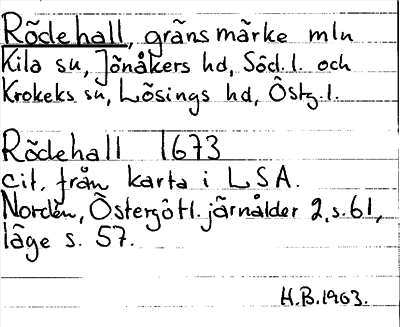 Rödehall, gränsmärke mln
Kila sn, Jönåkers hd, Söd.l. och
Krokeks sn, Lösings hd, Östg.l.
Rödehall 1673
cit. från karta i LSA.
Nordén, Östergötl. järnålder 2, s. 61,
läge s. 57.
H.B. 1963.